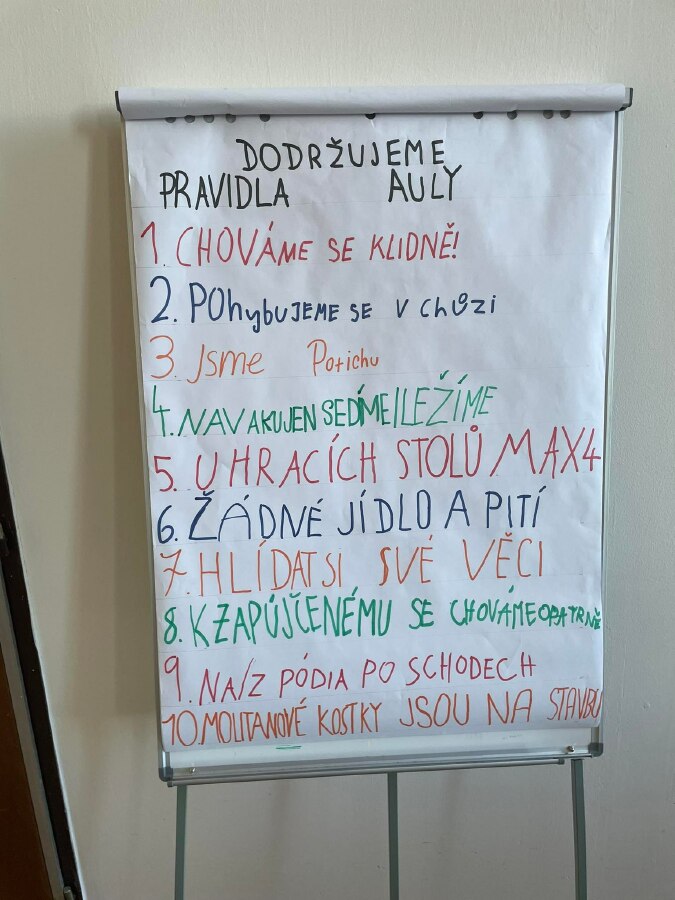 DODRŽUJEME
PRAVIDLA AULY
1. CHOVÁME SE KLIDNĚ!
2. POhybuJEME SE V Chůzi
3. Jsme Potichu
4. NA VAKU JEN SEDÍME/LEŽÍME
5. U HRACÍCH STOLŮ MAX 4
6. ŽÁDNÉ JÍDLO A PITÍ
7. HLÍDAT SI SVÉ VĚCI
8. K ZAPŮJČENÉMU SE CHOVÁME OPATRNĚ
9. NA/Z PÓDIA PO SCHODECH
10. MOLITANOVÉ KOSTKY JSOU NA STAVBU